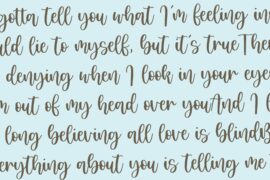 gotta tell you what I'm feeling in
uld lie to myself, but it's trueTher
denying when I look in your eye
m out of my head over youAnd I l
long believing all love is blindB
erything about you is telling me